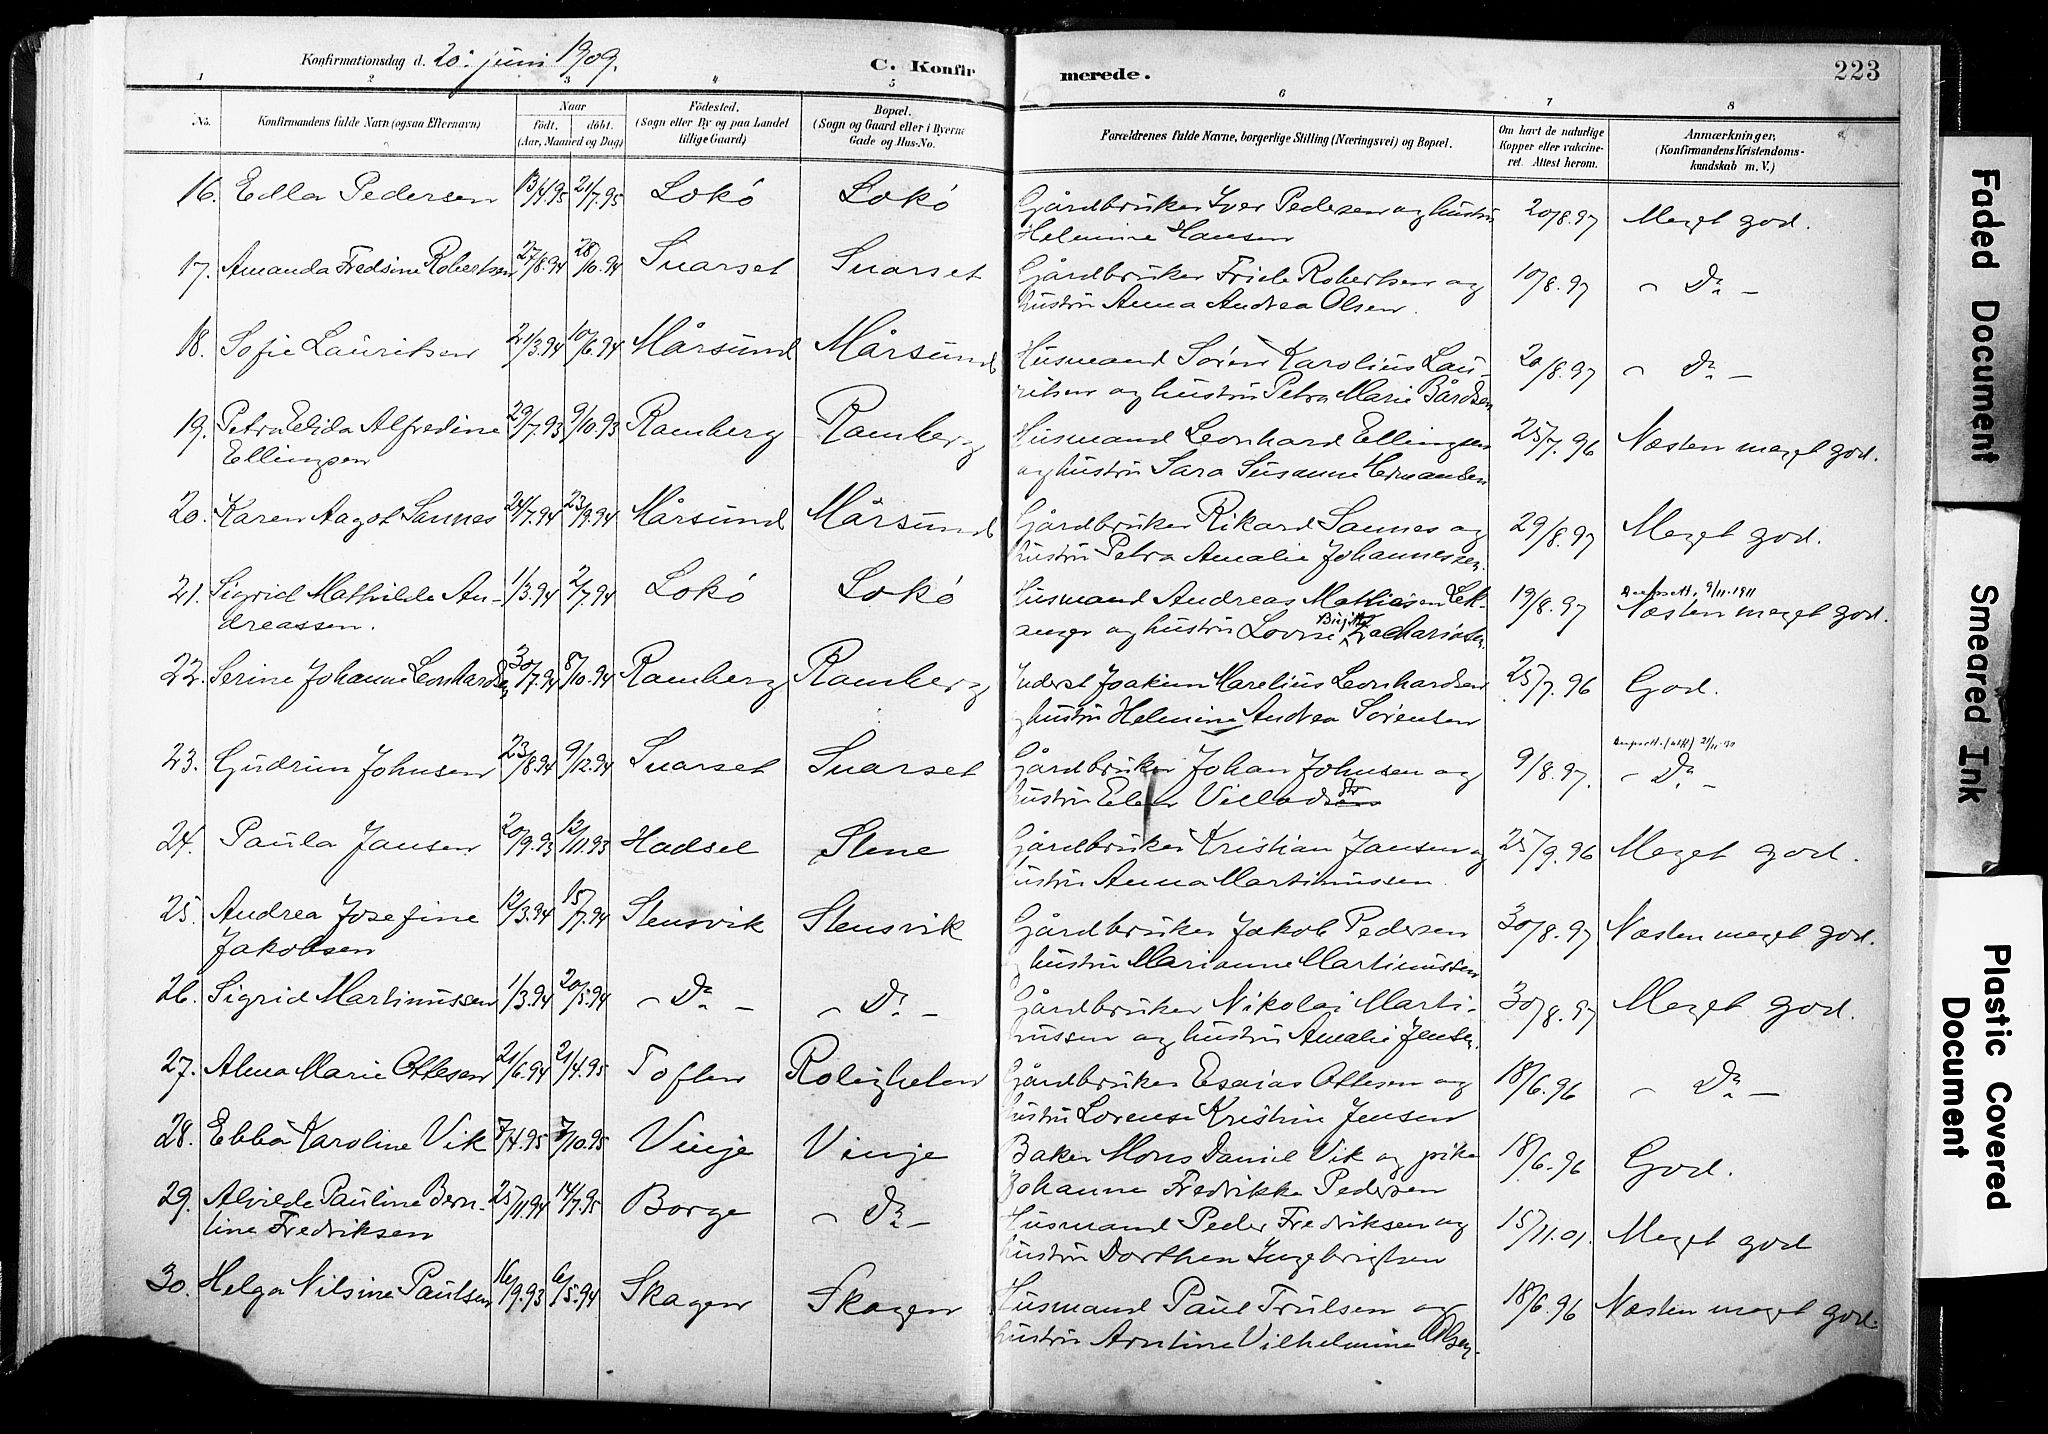 Konfirmationsdag d. 20. juni 1909.
C. Konfir merede.
223
1 2 3 4 5 6 7 8
No. Konfirmandens fulde Navn (ogsaa Efternavn) Naar født. døbt. (Aar, Maaned og Dag) Fødested. (Sogn eller By og paa Landet tillige Gaard) Bopæl. (Sogn og Gaard eller i Byerne Gade og Hus-No. Forældrenes fulde Navne, borgerlige Stilling (Næringsvei) og Bopæl. Om havt de naturlige Kopper eller vakcineret. Attest herom. Anmærkninger. (Konfirmandens Kristendomskundskab m. V.)
16. Edla Pedersen 13/4.95 21/7.95 Lokö Lokö Gårdbruker Iver Pedersen og hustru 20/8.97 Meget god.
Helmine Hansen
17. Amanda Fredsine Robertsen 27/8.94 28/10.94 Suarset Suarset Gårdbruker Fride Robertsen og 10/8.97 - Do -
hustru Anna Andrea Olsen.
18. Sofie Lauritsen 21/3.94 10/6.94 Mårsund Mårsund Husmand Sören Karolius Lau- 20/8.97 - Do -
ritsen og hustru Petra Marie Bårdsen
19. Petra Elida Alfredine 29/7.93 9/10.93 Ramberg Ramberg Husmand Leonhard Ellingsen 25/7.96 Næsten meget god.
Ellingsen og hustru Sara Susanne Hermansen
20. Karen Aagot Sannes 24/7.94 23/9.94 Mårsund Mårsund Gårdbruker Rikard Sannes og 29/8.97 Meget god.
hustru Petra Amalie Johannessen.
21. Sigrid Mathilde An- 1/3.94 2/7.94 Lokö Lokö Husmand Andreas Mathiesen Lek- 19/8.97 9/11-1911 Næsten meget god.
dreassen. anger og hustru Lovise Birgitte Zachariasen.
22. Serine Johanne Leonhardsen 30/7.94 8/10.94 Ramberg Ramberg Inderst Joakim Marelius Leonhardsen 25/7.96 God.
og hustru Helmine Andrea Sörensen
23. Gudrun Johnsen 23/8.94 9/12.94 Suarset Suarset Gårdbruker Johan Johnsen og 9/8.97. - Do -
hustru Elen
24. Paula Jansen 20/9.93 12/11.93 Hadsel Stene Gårdbruker Kristian Jansen og 25/9.96 Meget god.
hustru Anna Martinussen.
25. Andrea Josefine 12/3.94 15/7.94 Stensvik Stensvik Gårdbruker Jakob Pedersen 30/8.97 Næsten meget god.
Jakobsen og hustru Marianne Martinussen
26. Sigrid Martinussen 1/3.94 20/5.94 - Do - - Do - Gårdbruker Nikolai Marti- 30/8.97 Meget god.
nussen og hustru Amalie Jensen.
27. Alma Marie Ottesen 21/6.94 21/4.95 Toften Roligheten Gårdbruker Esaias Ottesen og 18/6.96 - Do -
hustru Lorense Kristine Jensen
28. Ebba Karoline Vik 7/4.95 7/10.95 Vinje Vinje Baker Mons Daniel Vik og pike 18/6.96 God.
Johanne Fredrikke Pedersen
29. Alvilde Pauline Bern- 25/11.94 14/7.95 Borge - Do - Husmand Peder Fredriksen og 15/11.01. Meget god
tine Fredriksen hustru Dorthea Ingebrigtsen
30. Helga Nilsine Paulsen 16/9.93 6/5.94 Skagen Skagen Husmand Paul Trulsen og 18/6.96 Næsten meget god.
hustru Arntine Vilhelmine Olsen.
Faded Document
Smeared Ink
Plastic Covered
Document